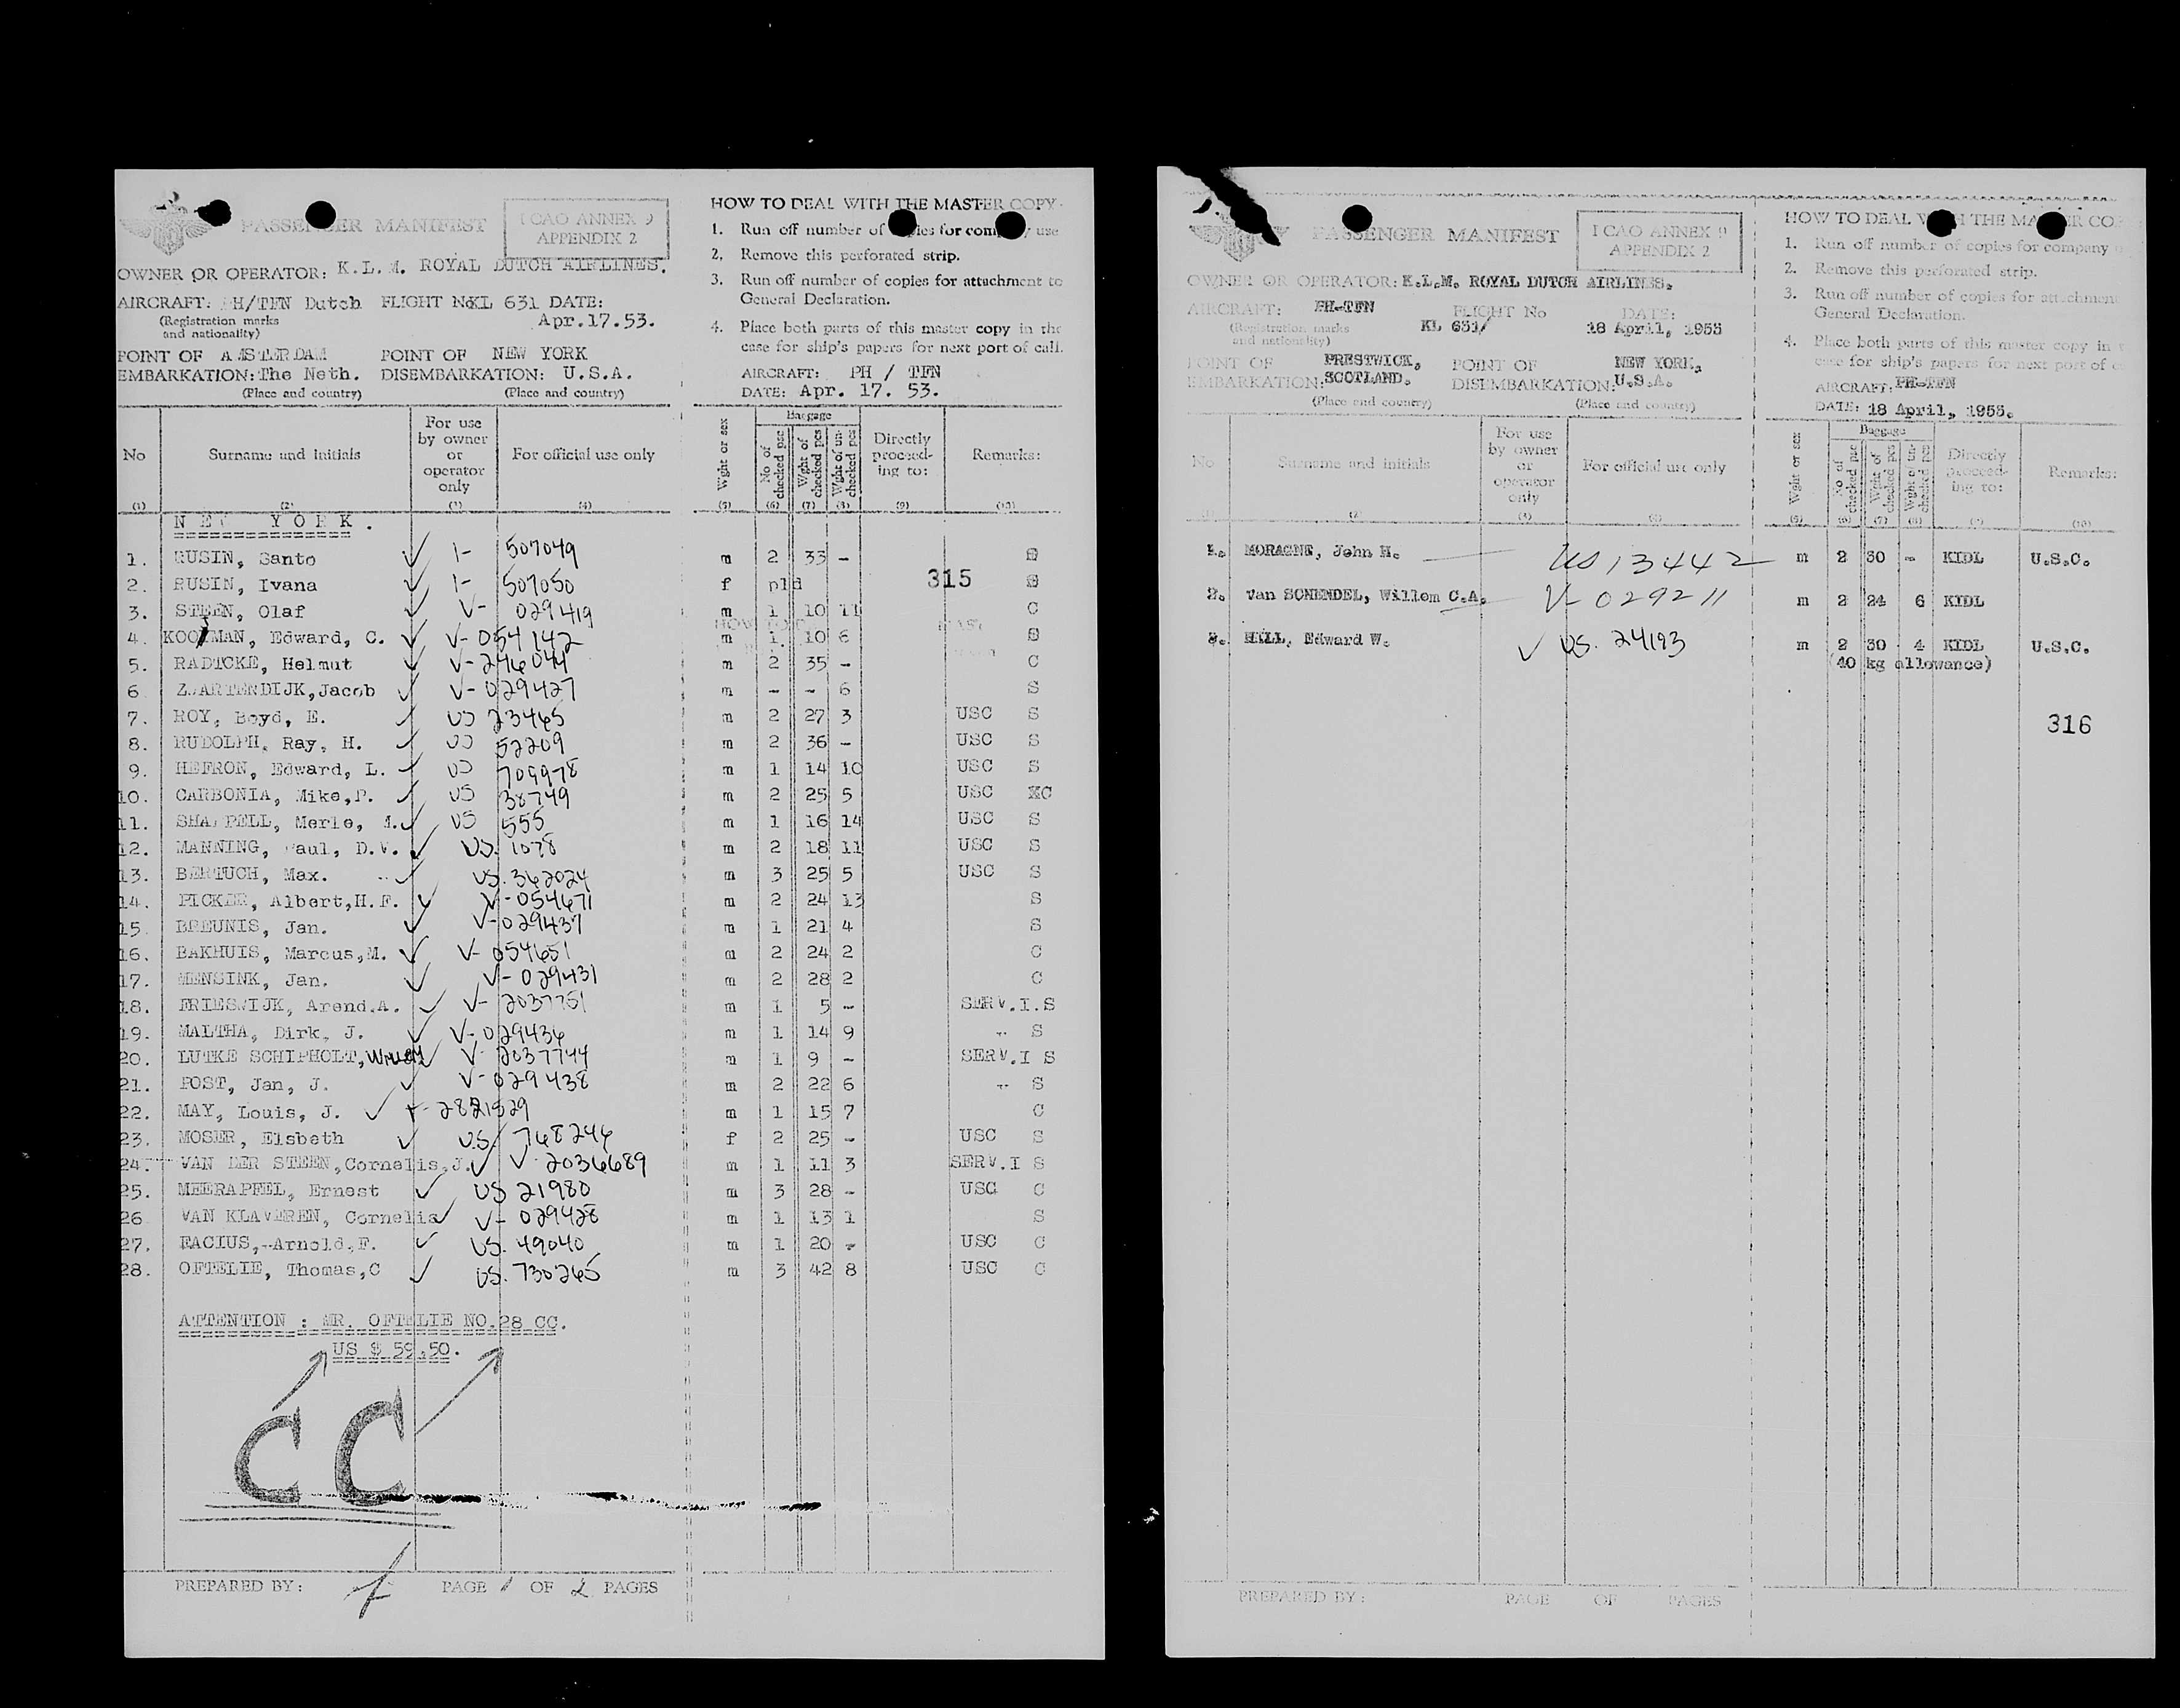 PASSENGER MANIFEST
I CAO ANNEX 9
APPENDIX 2
OWNER OR OPERATOR: K.L.M. ROYAL DUTCH AIRLINES.
AIRCRAFT: PH/TFN Dutch FLIGHT No KL 631 DATE:
(Registration marks
and nationality)
Apr.17.53.
POINT OF AMSTERDAM POINT OF NEW YORK
EMBARKATION: The Neth. DISEMBARKATION: U.S.A.
(Place and country) (Place and country)
HOW TO DEAL WITH THE MASTER COPY
1. Run off number of copies for company use
2. Remove this perforated strip.
3. Run off number of copies for attachment to
General Declaration.
4. Place both parts of this master copy in the
case for ship's papers for next port of call.
AIRCRAFT: PH / TFN
DATE: Apr. 17. 53.
No Surname and initials For use by owner or operator only For official use only Wght or sex Baggage No of checked psc Wght of checked pcs Wght of un-checked pcs Directly proceed-ing to: Remarks:
(1) (2) (3) (4) (5) (6) (7) (8) (9) (10)
NEW YORK.
1. RUSIN, Santo I- 507049 m 2 33 - S
2. RUSIN, Ivana I- 507050 f pld 315 S
3. STEEN, Olaf V- 029419 m 1 10 11 C
4. Edward, C. V-054142 m 1 10 6 S
5. RADTCKE, Helmut V-246044 m 2 35 - C
6 ZWARTENDIJK, Jacob V-029427 m - - 6 S
7. ROY, Boyd, E. US 23465 m 2 27 3 USC S
8. RUDOLPH, Ray, H. US 52209 m 2 36 - USC S
9. HEFRON, Edward, L. US 709978 m 1 14 10 USC S
10. CARBONIA, Mike,P. US 38749 m 2 25 5 USC XC
11. Merle, M. US 555 m 1 16 14 USC S
12. MANNING, Paul, D.V. US. 1078 m 2 18 11 USC S
13. BERTUCH, Max. US. 362024 m 3 25 5 USC S
14. PICKER, Albert,H.F. V-054671 m 2 24 13 S
15 BREUNIS, Jan. V-029437 m 1 21 4 S
16. BAKHUIS, Marcus,M. V-054651 m 2 24 2 C
17. MENSINK, Jan. V-029431 m 2 28 2 C
18. FRIESWIJK, Arend.A. V-2037751 m 1 5 - SERV.I.S
19. MALTHA, Dirk, J. V-029436 m 1 14 9 - S
20. LUTKE SCHIPHOLT, V-2037744 m 1 9 - SERV.I S
21. POST, Jan, J. V-029438 m 2 22 6 - S
22. MAY, Louis, J. m 1 15 7 C
23. MOSER, Elsbeth US. 748246 f 2 25 - USC S
24. VAN DER STEEN,Cornelis,J. V-2036689 m 1 11 3 SERV.I S
25. MEERAPFEL, Ernest US 21980 m 3 28 - USC C
26 VAN KLAVEREN, Cornelis V-029428 m 1 13 1 S
27. FACIUS, Arnold,F. US. 49040 m 1 20 - USC C
28. OFTELIE, Thomas,C US. 730265 m 3 42 8 USC C
ATTENTION : MR. OFTELIE NO.28 CC.
US $ 59.50.
CC
PREPARED BY: PAGE 1 OF 2 PAGES
PASSENGER MANIFEST
I CAO ANNEX 9
APPENDIX 2
OWNER OR OPERATOR: K.L.M. ROYAL DUTCH AIRLINES.
AIRCRAFT: PH-TFN FLIGHT No DATE:
(Registration marks
and nationality)
KL 631/ 18 April, 1953
POINT OF PRESTWICK, POINT OF NEW YORK,
EMBARKATION: SCOTLAND. DISEMBARKATION: U.S.A.
(Place and country) (Place and country)
HOW TO DEAL WITH THE MASTER COP
1. Run off number of copies for company
2. Remove this perforated strip.
3. Run off number of copies for attachment
General Declaration.
4. Place both parts of this master copy in
case for ship's papers for next port of
AIRCRAFT: PH-TFN
DATE: 18 April, 1953.
No Surname and initials For use by owner or operator only For official use only Wght or sex Baggage No of checked psc Wght of checked pcs Wght of un-checked pcs Directly proceed-ing to: Remarks:
1. MORAGNE, John H. US 13442 m 2 30 - KIDL U.S.C.
2. van SCHENDEL, Willem C.A. V-029211 m 2 24 6 KIDL
3. HILL, Edward W. US. 24193 m 2 30 4 KIDL U.S.C.
(40 kg allowance)
316
PREPARED BY: PAGE OF PAGES